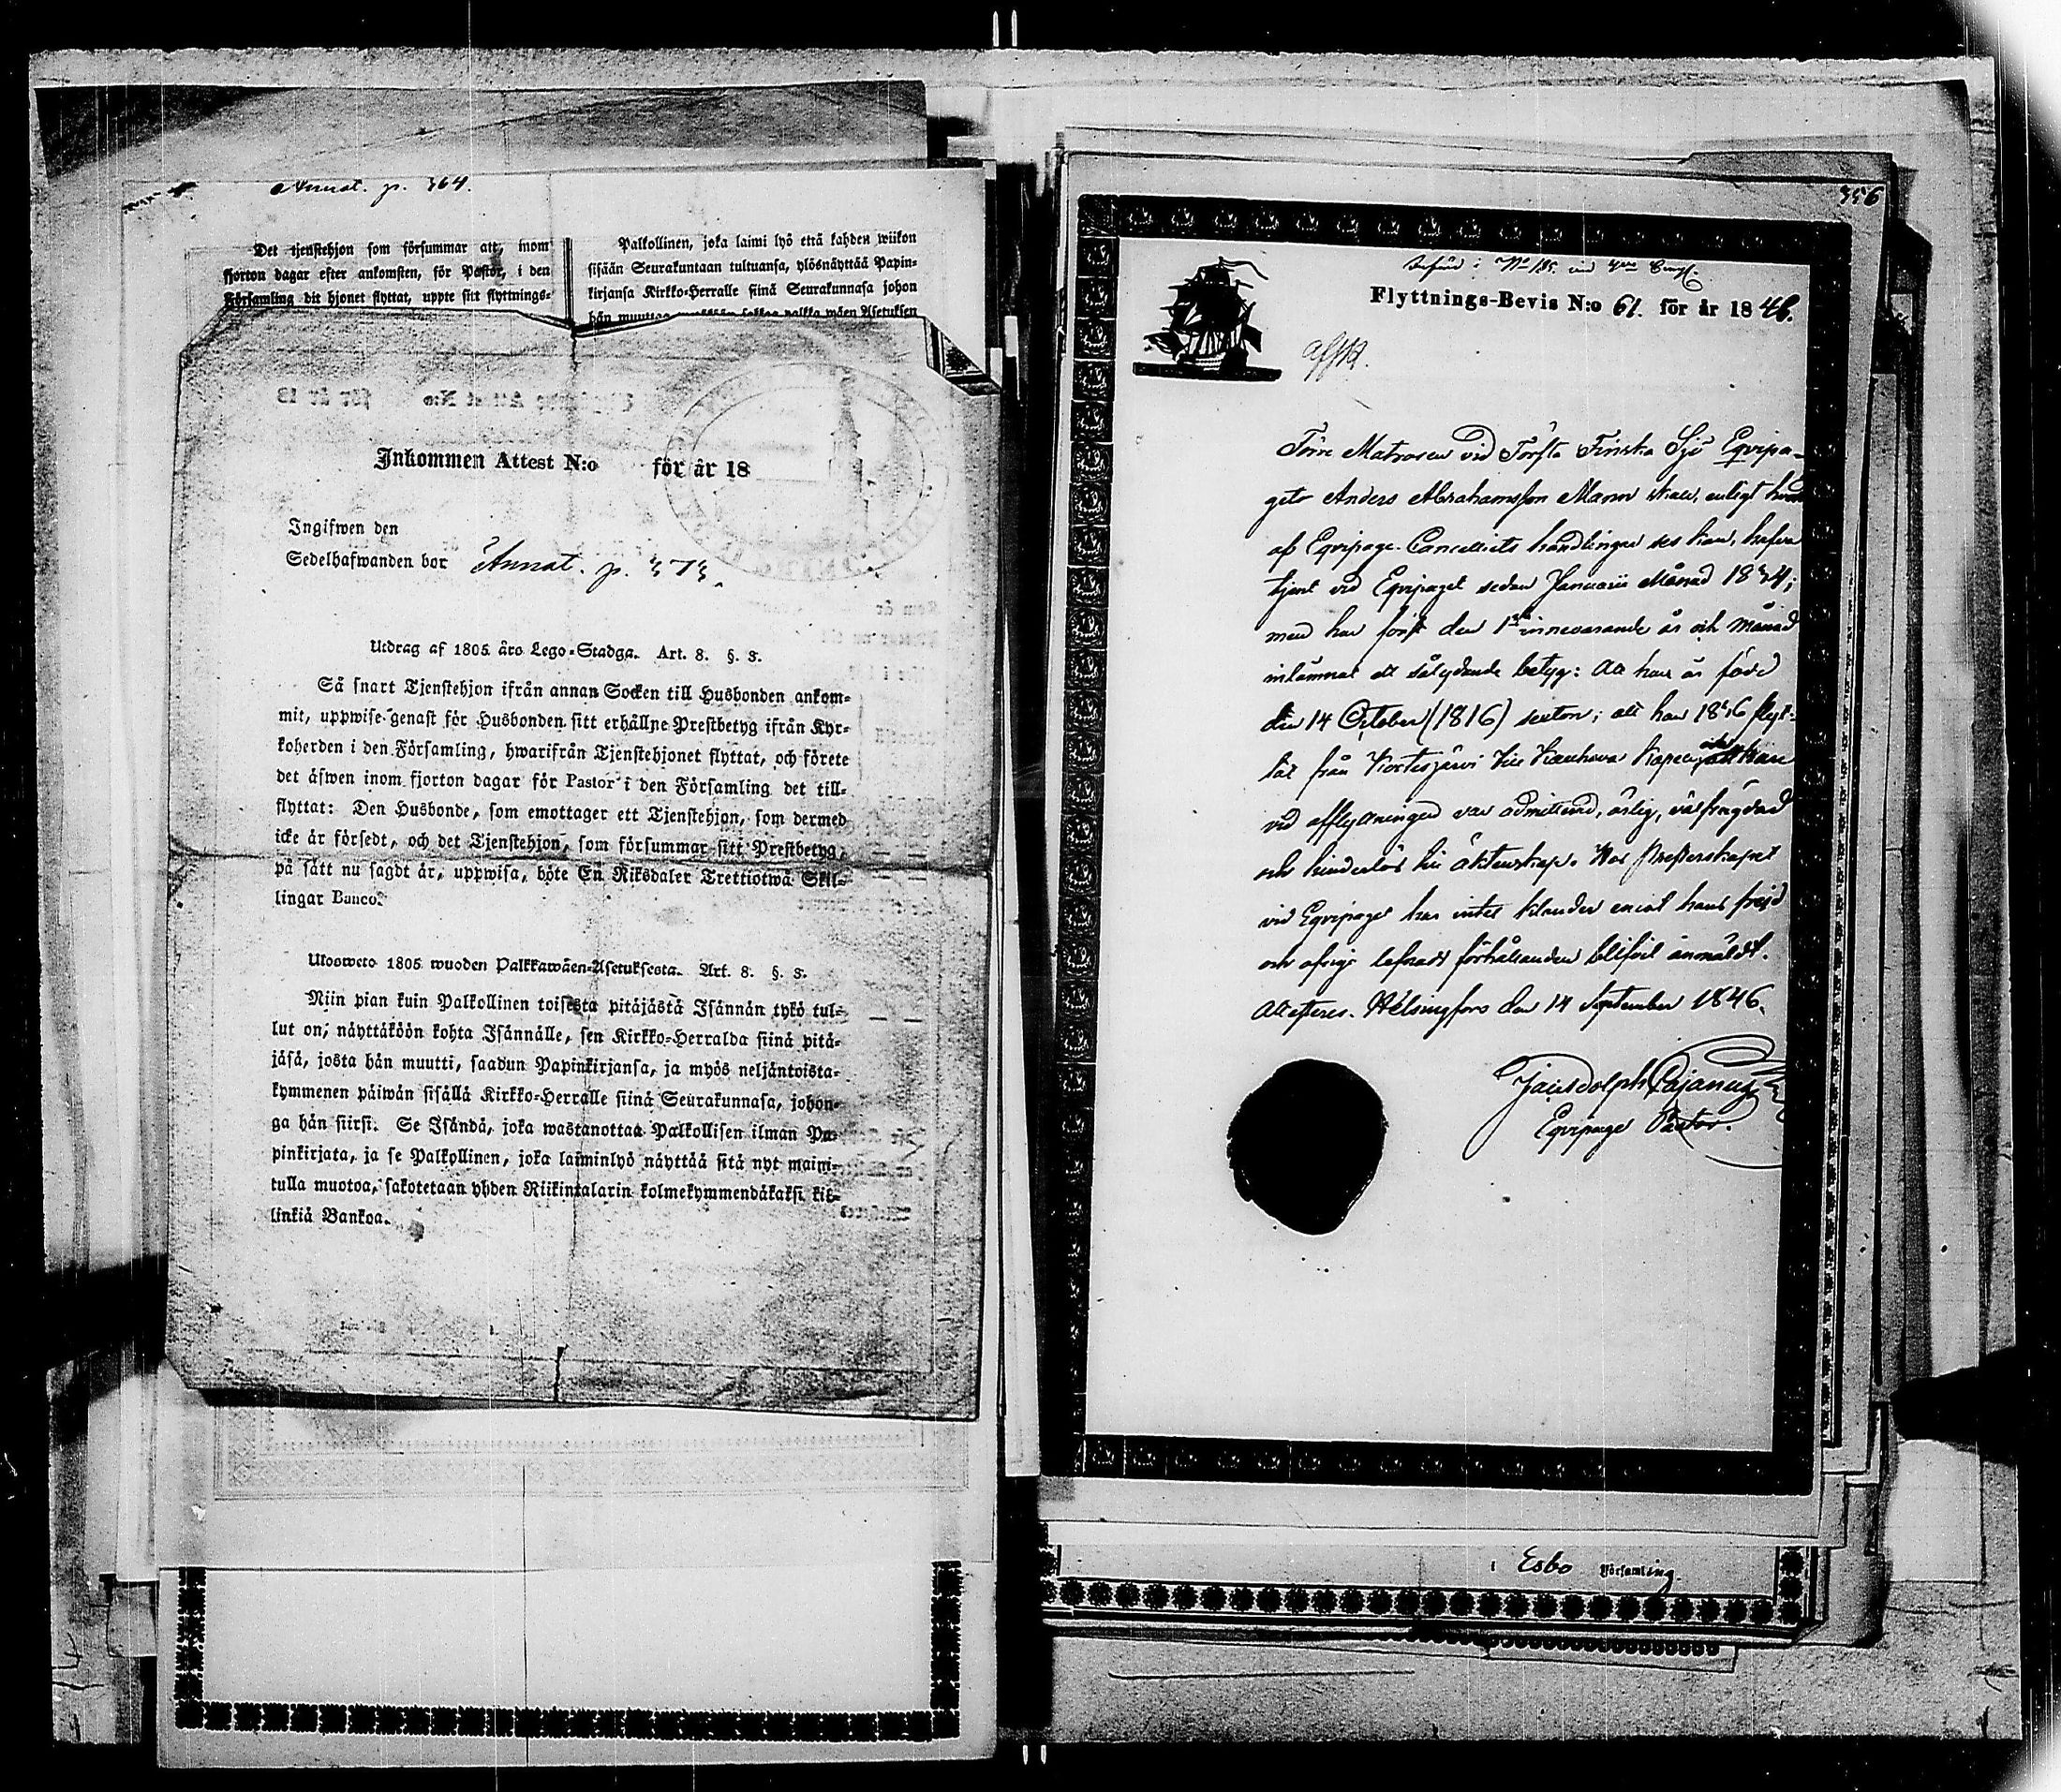 Annot. p. 364.
Det tjenstehjon som försummar att, inom
fjorton dagar efter ankomsten, för Pastor, i den
Församling dit hjonet flyttat, uppte sitt flyttnings-
Palkollinen, joka laimi lyö että kahden wiikon
sisään Seurakuntaan tultuansa, ylösnäyttää Papin-
kirjansa Kirkko-Herralle siinä Seurakunnasa johon
hän muuttaa palkka wäen Asetuksen
Inkommen Attest N:o för år 18
Ingifwen den
Sedelhafwanden bor Annot. p. 373.
Utdrag af 1805 års Lego-Stadga. Art. 8. §. 3.
Så snart Tjenstehjon ifrån annan Socken till Husbonden ankom-
mit, uppwise genast för Husbonden sitt erhållne Prestbetyg ifrån Kyr-
koherden i den Församling, hwarifrån Tjenstehjonet flyttat, och förete
det äfwen inom fjorton dagar för Pastor i den Församling det till-
flyttat: Den Husbonde, som emottager ett Tjenstehjon, som dermed
icke är försedt, och det Tjenstehjon, som försummar sitt Prestbetyg,
på sätt nu sagdt är, uppwisa, böte En Riksdaler Trettiotwå Skil-
lingar Banco.
Ulosweto 1805 wuoden Palkkawäen-Asetuksesta. Art. 8. §. 3.
Niin pian kuin Palkollinen toisesta pitäjästä Isännän tykö tul-
lut on, näyttäköön kohta Isännälle, sen Kirkko-Herralda siinä pitä-
jäsä, josta hän muutti, saadun Papinkirjansa, ja myös neljäntoista-
kymmenen päiwän sisällä Kirkko-Herralle siinä Seurakunnasa, johon-
ga hän siirsi. Se Isändä, joka wastanottaa Palkollisen ilman Pa-
pinkirjata, ja se Palkollinen, joka laiminlyö näyttää sitä nyt maini-
tulla muotoa, sakotetaan yhden Riikintalarin kolmekymmendäkaksi kil-
linkiä Bankoa.
356
Flyttnings-Bevis N:o 61. för år 1846.
Förre Matrosen vid Första Finska Sjö Eqvipa-
gets Anders Abrahamsson Mann skall, enligt hvad
af Eqvipage-Cancelliets handlingar ses kan, hafva
tjent vid Eqvipaget sedan Januarii Månad 1834;
men har först den 1sta innevarande år och månad
inlämnat ett sålydande betyg: Att han är född
den 14 October (1816) sexton; att han 1836 flyt-
tat från Kortesjärvi till Kauhava Kapell, att han
vid afflyttningen var admitterad, ärlig, välfrägdad
och hinderlös till äktenskap. Hos Presterskapet
vid Eqvipaget har intet klander emot hans frejd
och öfrige lefnads förhållanden blifvit anmäldt.
Attesteras. Helsingfors den 14 September 1846.
Cajanus
Eqvipage Pastor.
i Esbo Församling.